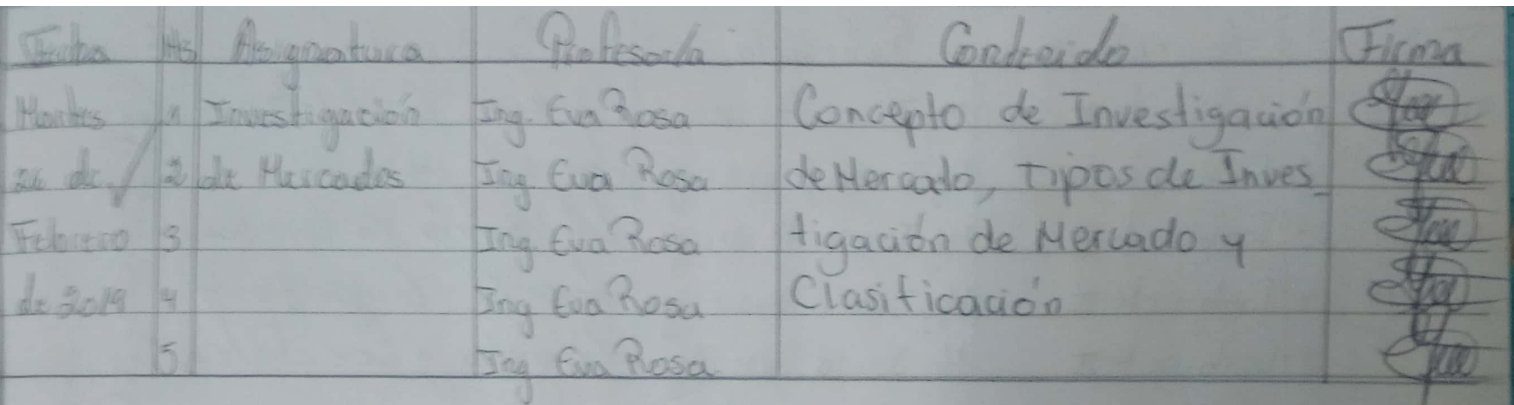 Fecha Hs Asignatura Profesor/a Contenido Firma
Martes 1 Investigación Ing. Eva Rosa Concepto de Investigación
26 de 2 de Mercados Ing. Eva Rosa de Mercado, Tipos de Inves_
Febrero 3 Ing. Eva Rosa tigación de Mercado y
de 2019 4 Ing Eva Rosa Clasificación
5 Ing Eva Rosa